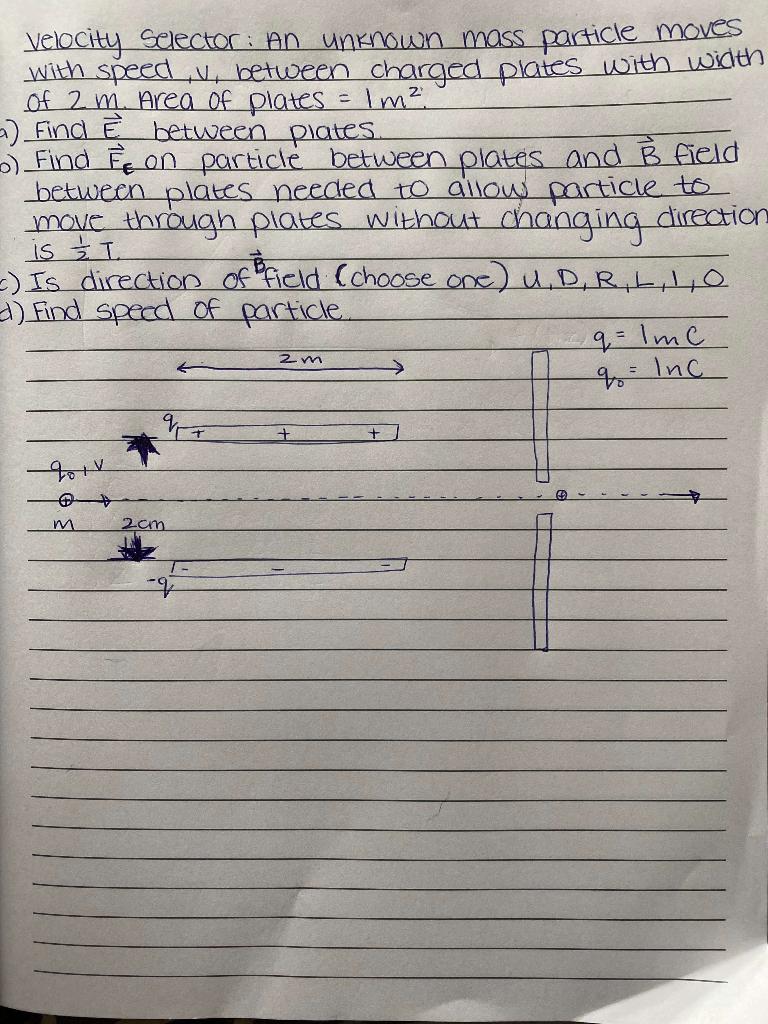 Velocity Selector: An unknown mass particle moves
with speed, v, between charged plates with width
of 2 m. Area of plates = 1m².
a) Find E⃗ between plates.
b) Find F⃗ᴇ on particle between plates and B⃗ field
between plates needed to allow particle to
move through plates without changing direction
is ½ T.
c) Is direction of B⃗ field (choose one) U, D, R, L, I, O
d) Find speed of particle.
q = 1mC
2m
q₀ = 1nC
q
+ + +
q₀, v
⊕ ⊕
m 2cm
- - -
-q